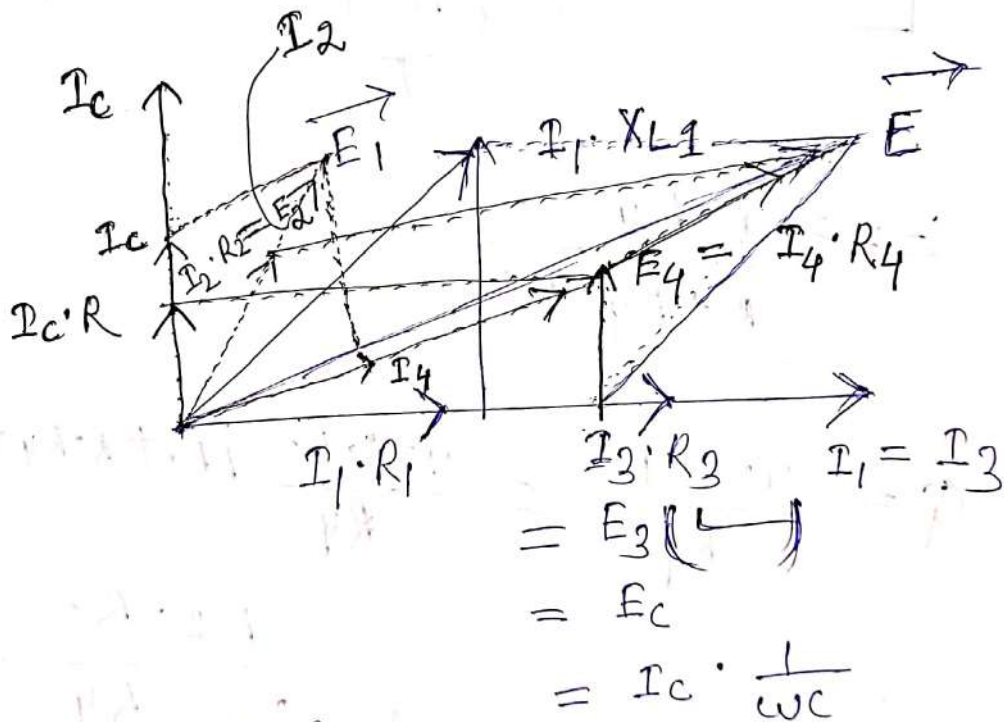 I2
Ic
E1
I1 · XL1
E
Ic
I2 · R2 = E2
E4 = I4 · R4
Ic · R
I4
I1 · R1
I3 · R3
I1 = I3
= E3
= Ec
= Ic · 1/ωC